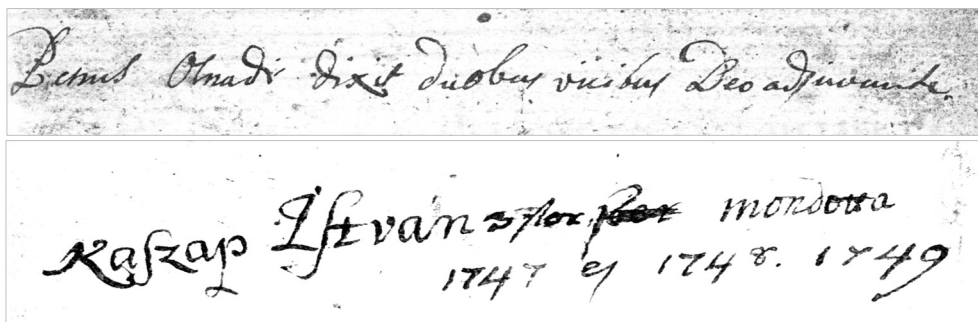 Petrus Osnadi dixit duobus vicibus Deo adjuvante.
Kaszap István 3szor mondotta
1747 es 1748. 1749